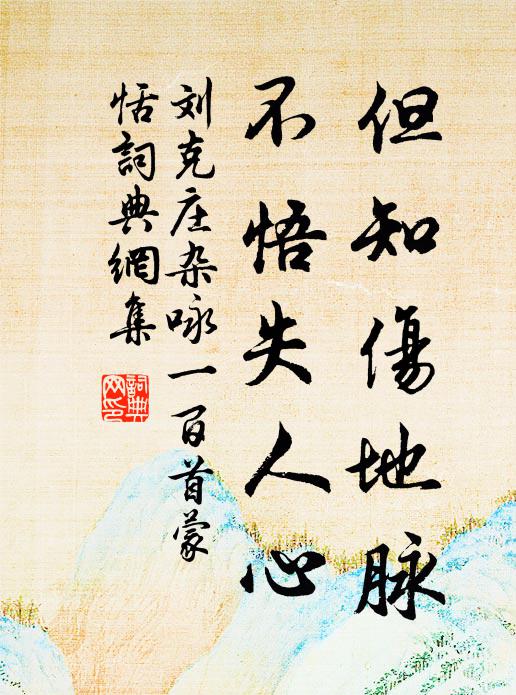 但知傷地脉
不悟失人心
刘克庄杂咏一百首蒙
恬詞典網集
詞典
网印